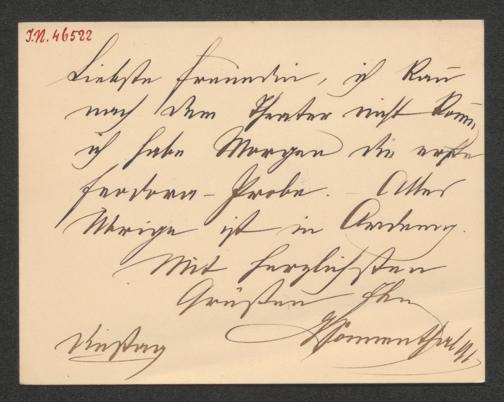 J.N. 46522
Liebste Freundin, ich kan̄
nach dem Theater nicht kom̄en,
ich habe Morgen die erste
Feodora-Probe. – Alles
Übrige ist in Ordnung.
Mit herzlichsten
Grüßen Ihr
Sonnenthal
Dienstag